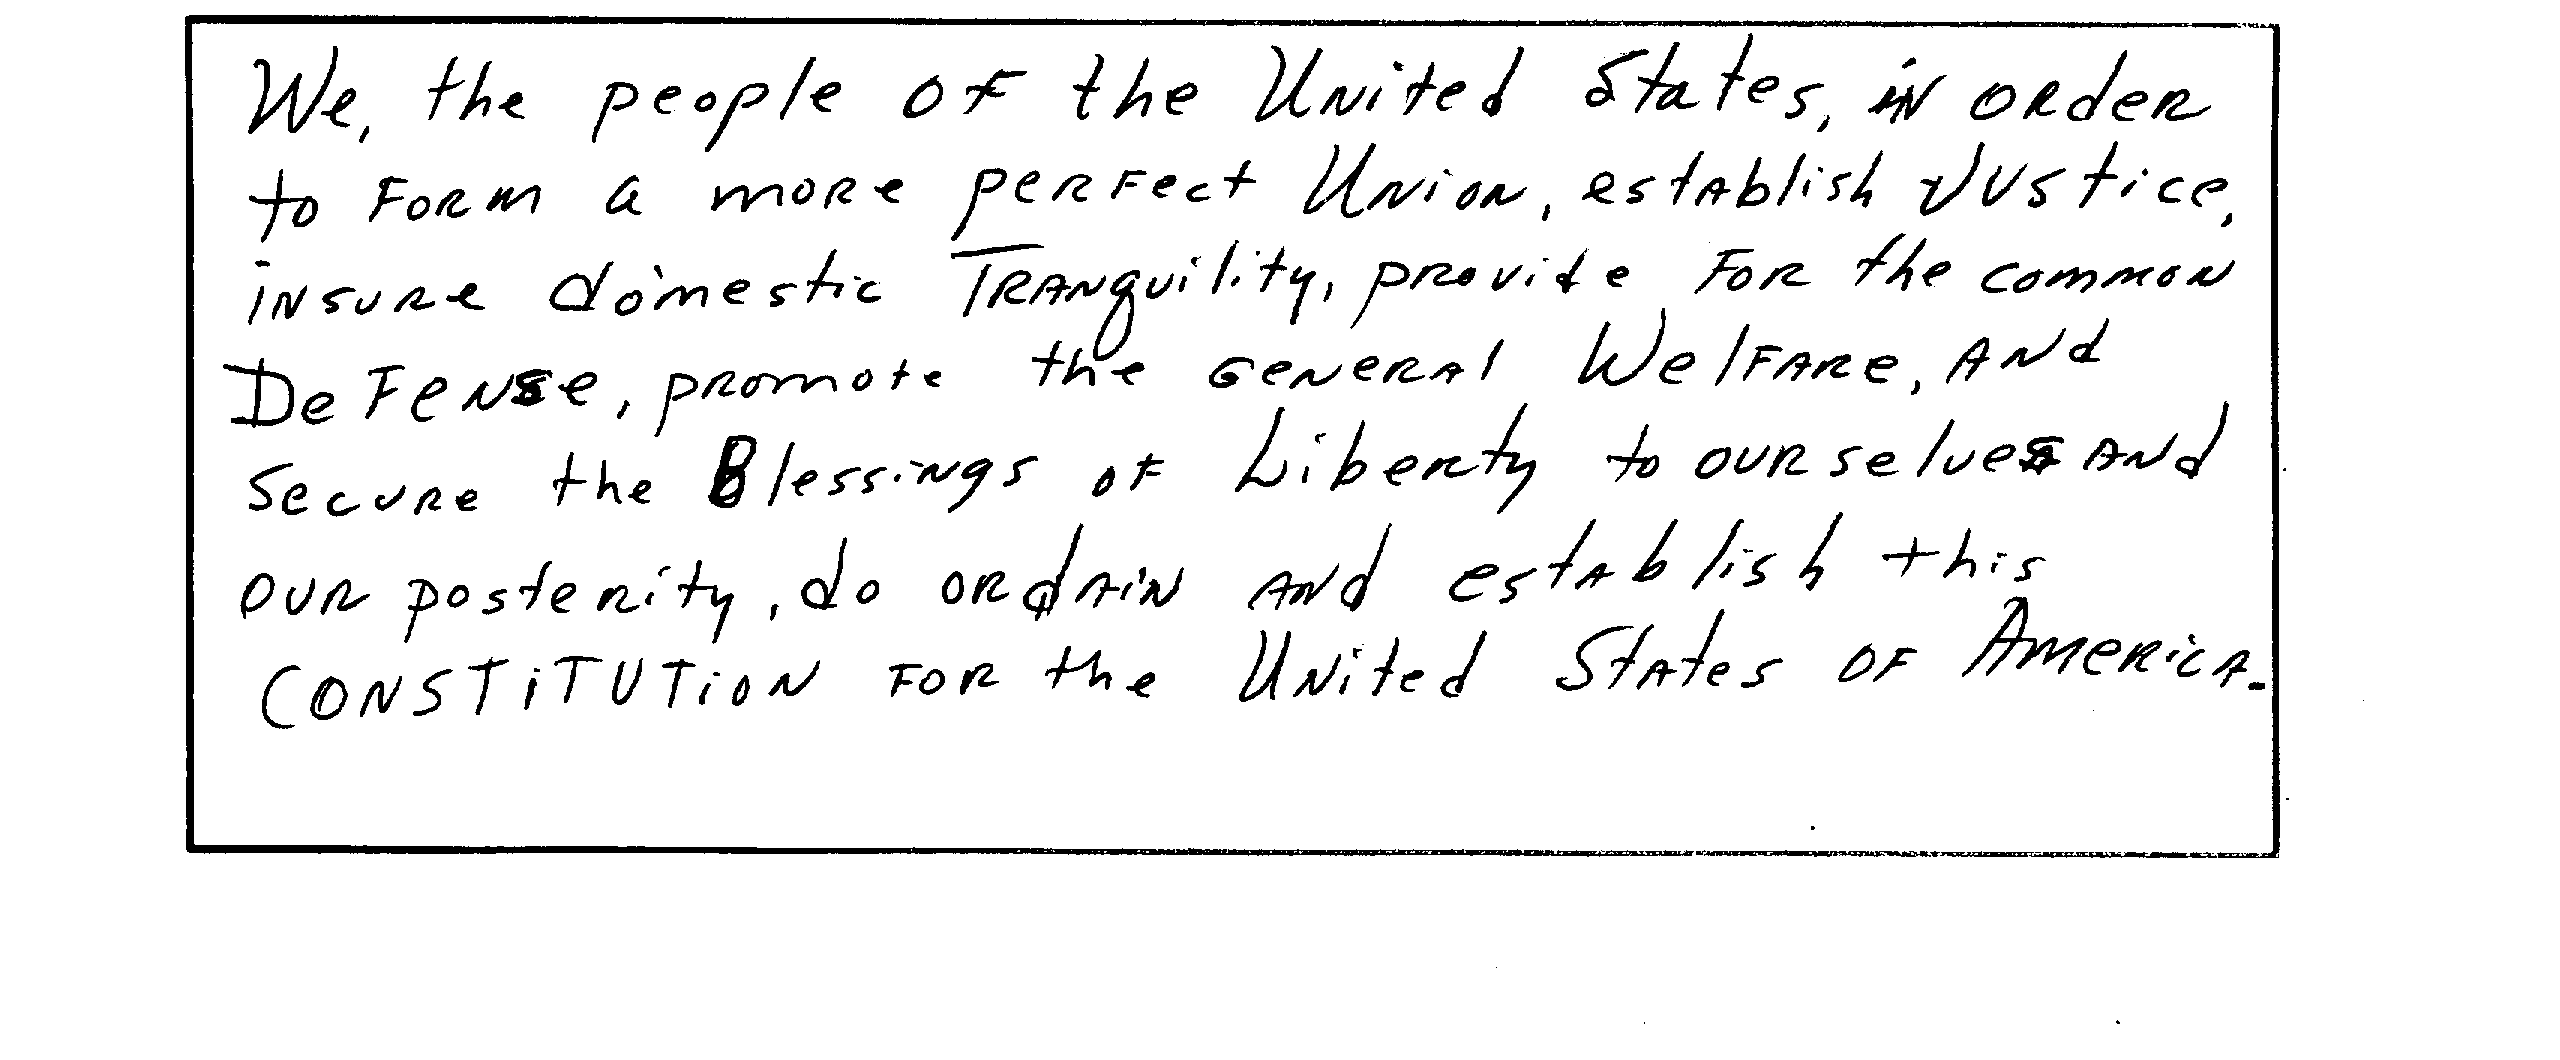 We, the people of the United States, in order
to form a more perfect Union, establish Justice,
insure domestic Tranquility, provide for the common
Defense, promote the general Welfare, and
secure the Blessings of Liberty to ourselves and
our posterity, do ordain and establish this
CONSTITUTION for the United States of America.